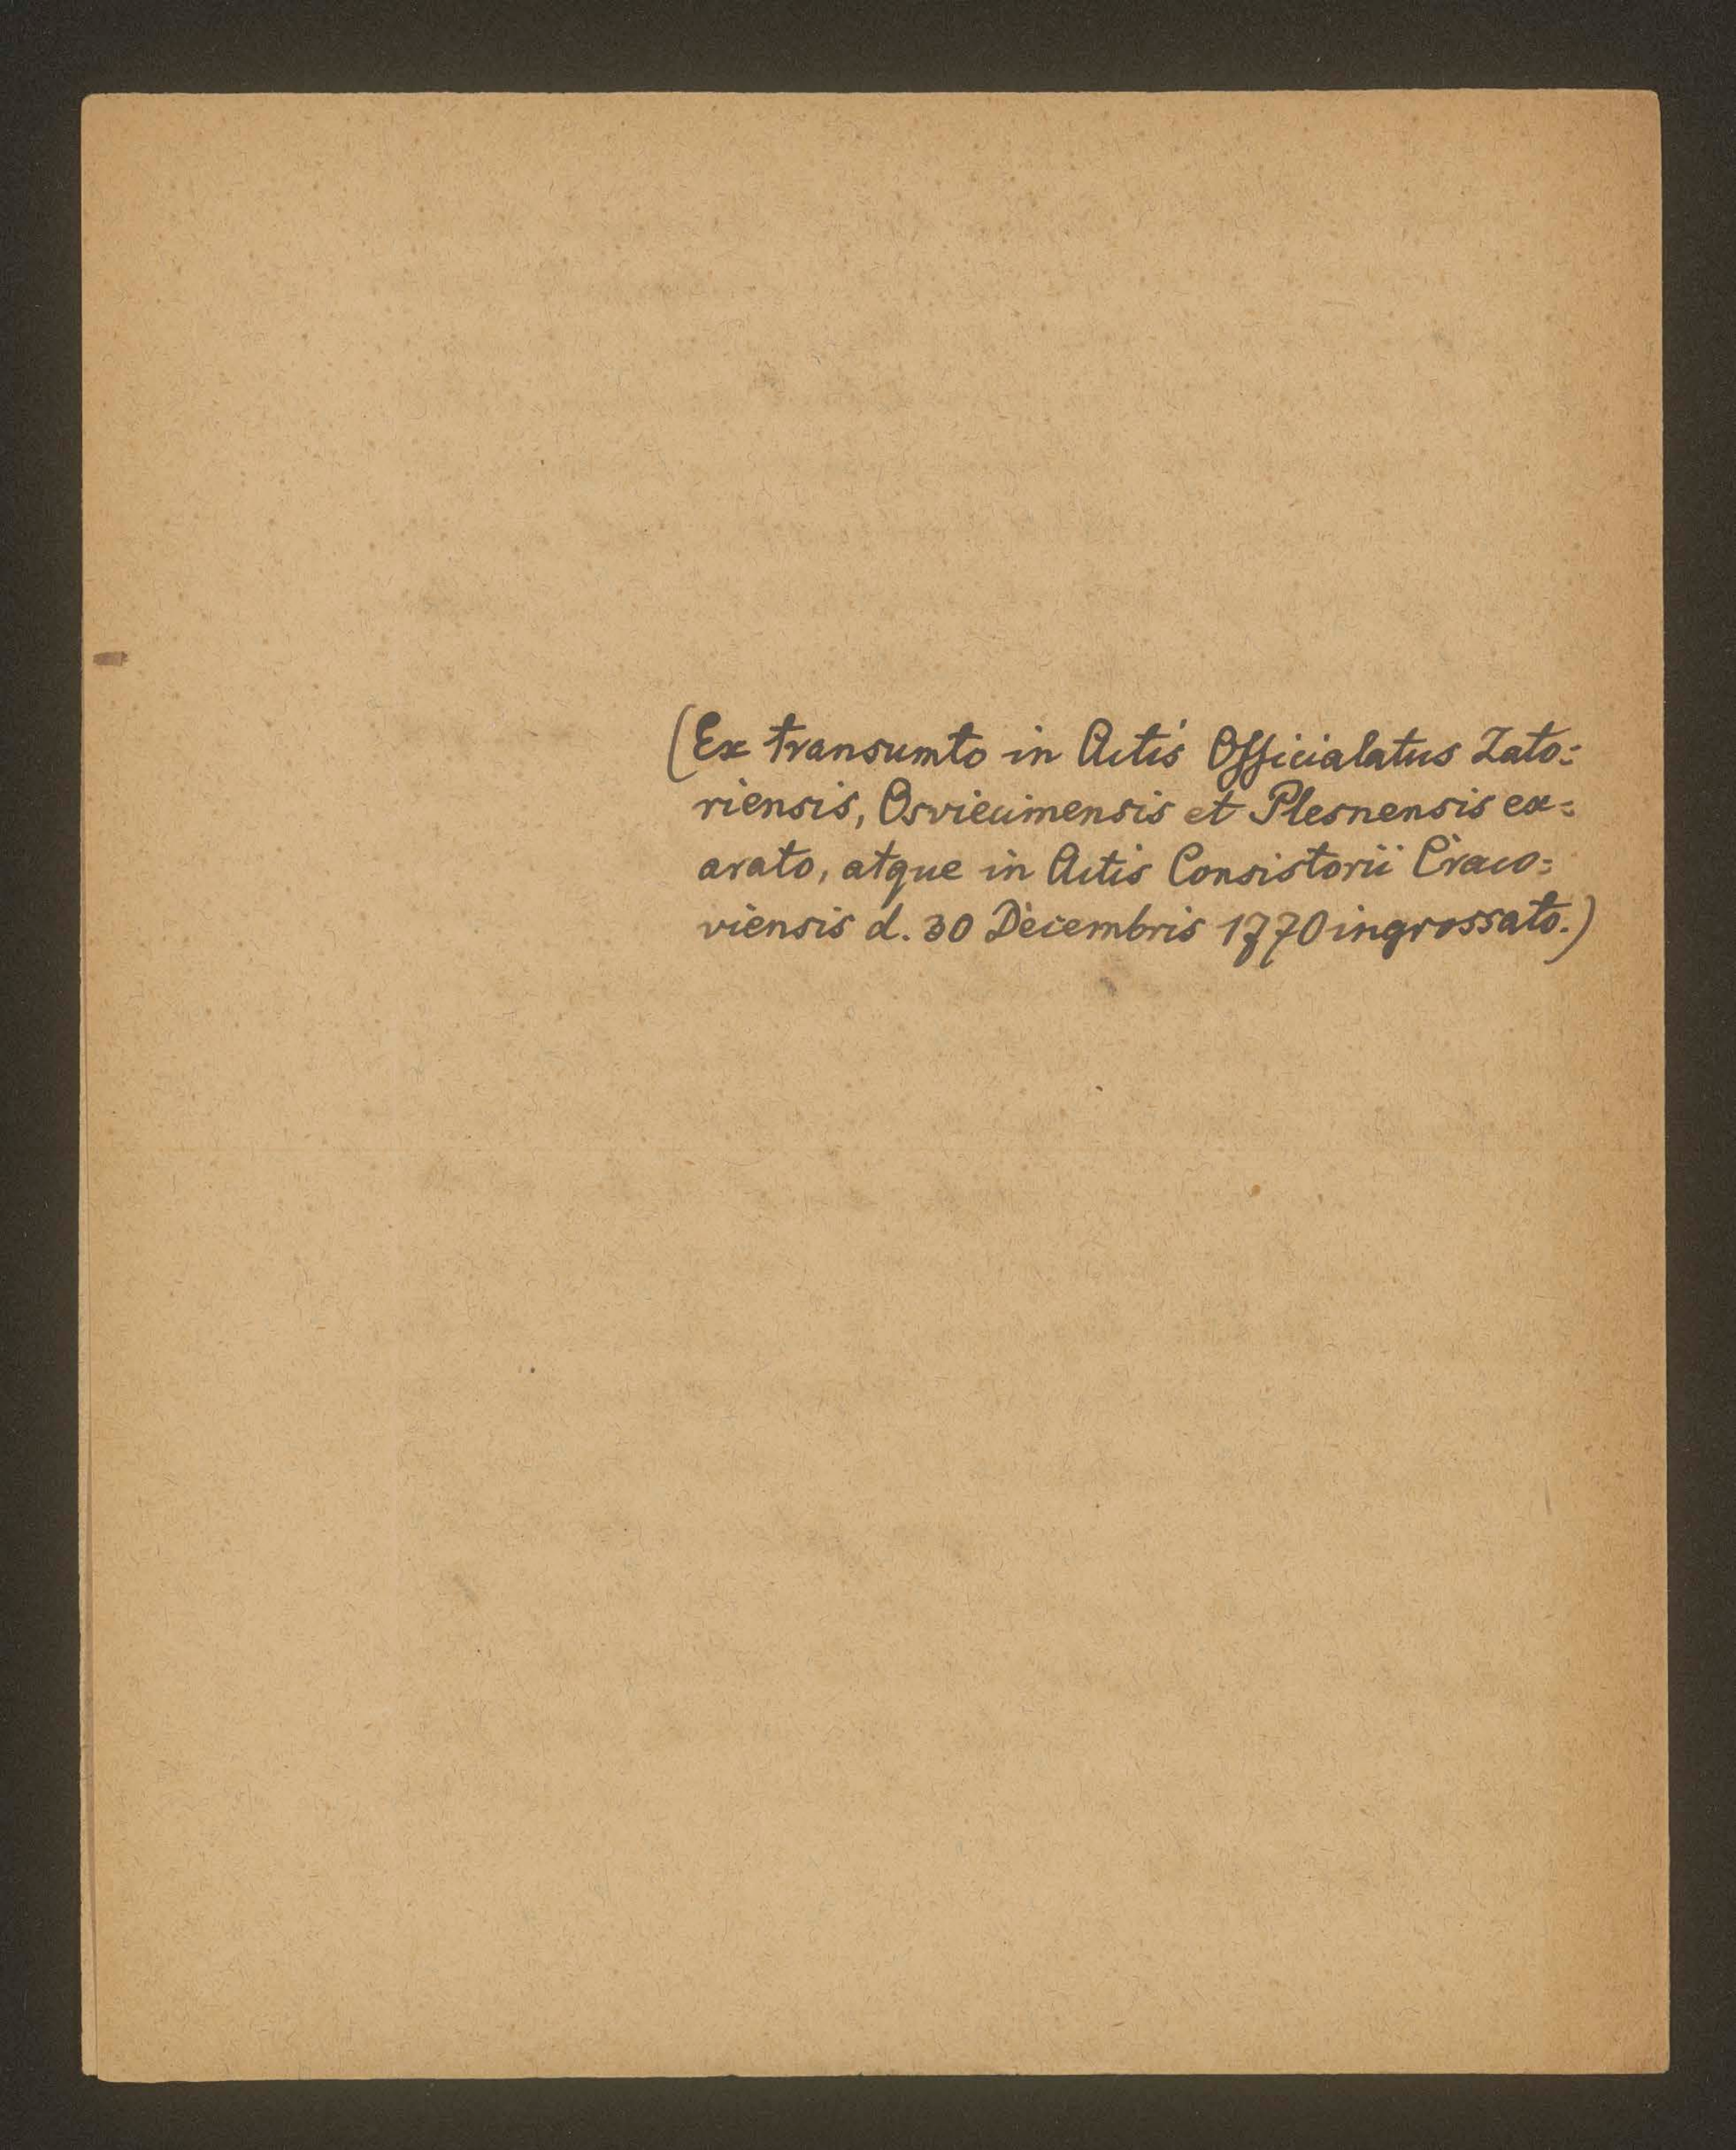 (Ex transumto in Actis Officialatus Zato=
riensis, Osviecimensis et Plesnensis ex=
arato, atque in Actis Consistorii Craco=
viensis d. 30 Decembris 1770 ingrossato.)